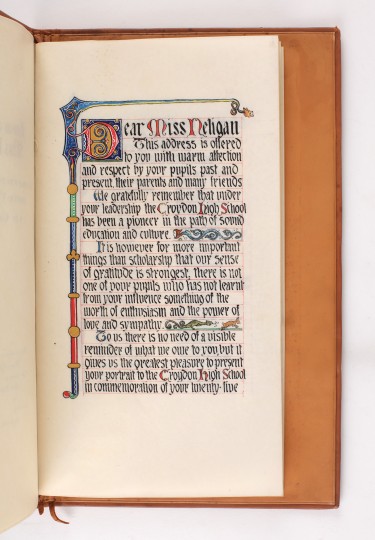 Dear Miss Neligan
This address is offered
to you with warm affection
and respect by your pupils past and
present, their parents and many friends
We gratefully remember that under
your leadership the Croydon High School
has been a pioneer in the path of sound
education and culture.
It is however for more important
things than scholarship that our sense
of gratitude is strongest, there is not
one of your pupils who has not learnt
from your influence something of the
worth of enthusiasm and the power of
love and sympathy.
To us there is no need of a visible
reminder of what we owe to you, but it
gives us the greatest pleasure to present
your portrait to the Croydon High School
in commemoration of your twenty-five